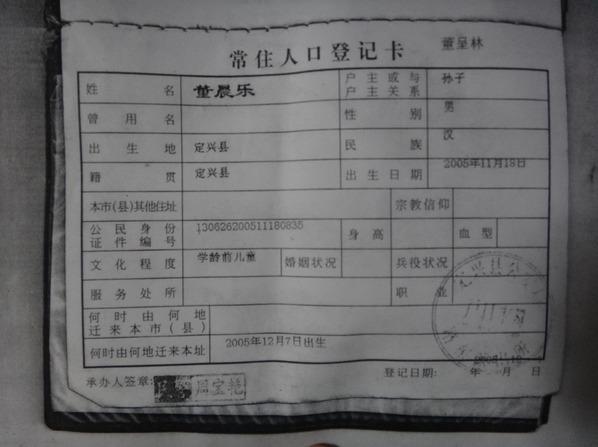 常住人口登记卡 董呈林
姓名 董晨乐 户主或与户主关系 孙子
曾用名 性别 男
出生地 定兴县 民族 汉
籍贯 定兴县 出生日期 2005年11月18日
本市(县)其他住址 宗教信仰
公民身份证件编号 130626200511180835 身高 血型
文化程度 学龄前儿童 婚姻状况 兵役状况
服务处所 职业
何时由何地迁来本市(县)
何时由何地迁来本址 2005年12月7日出生
承办人签章: 周宝艳 登记日期: 年 月 日